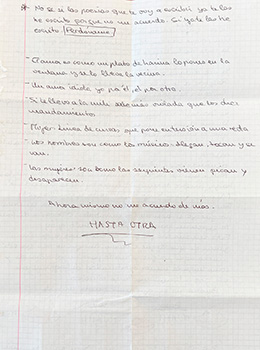 * No se si las poesias que te voy a escribir ya te las
he escrito porque no me acuerdo. Si ya te las he
escrito Perdóname.
- El amor es como un plato de harina lo pones en la
ventana y se lo lleva la vecina.
- Un ama idiota yo por él, el por otra.
- Si te llevo a la mili sabe mas violada que los diez
mandamientos.
- Mujer: Linea de curvas que pone extension a una recta
- Los hombres son como los músicos. Llegan, tocan y se
van.
- Las mujeres son como las serpientes vienen pican y
desaparecen.
Ahora mismo no me acuerdo de más.
HASTA OTRA